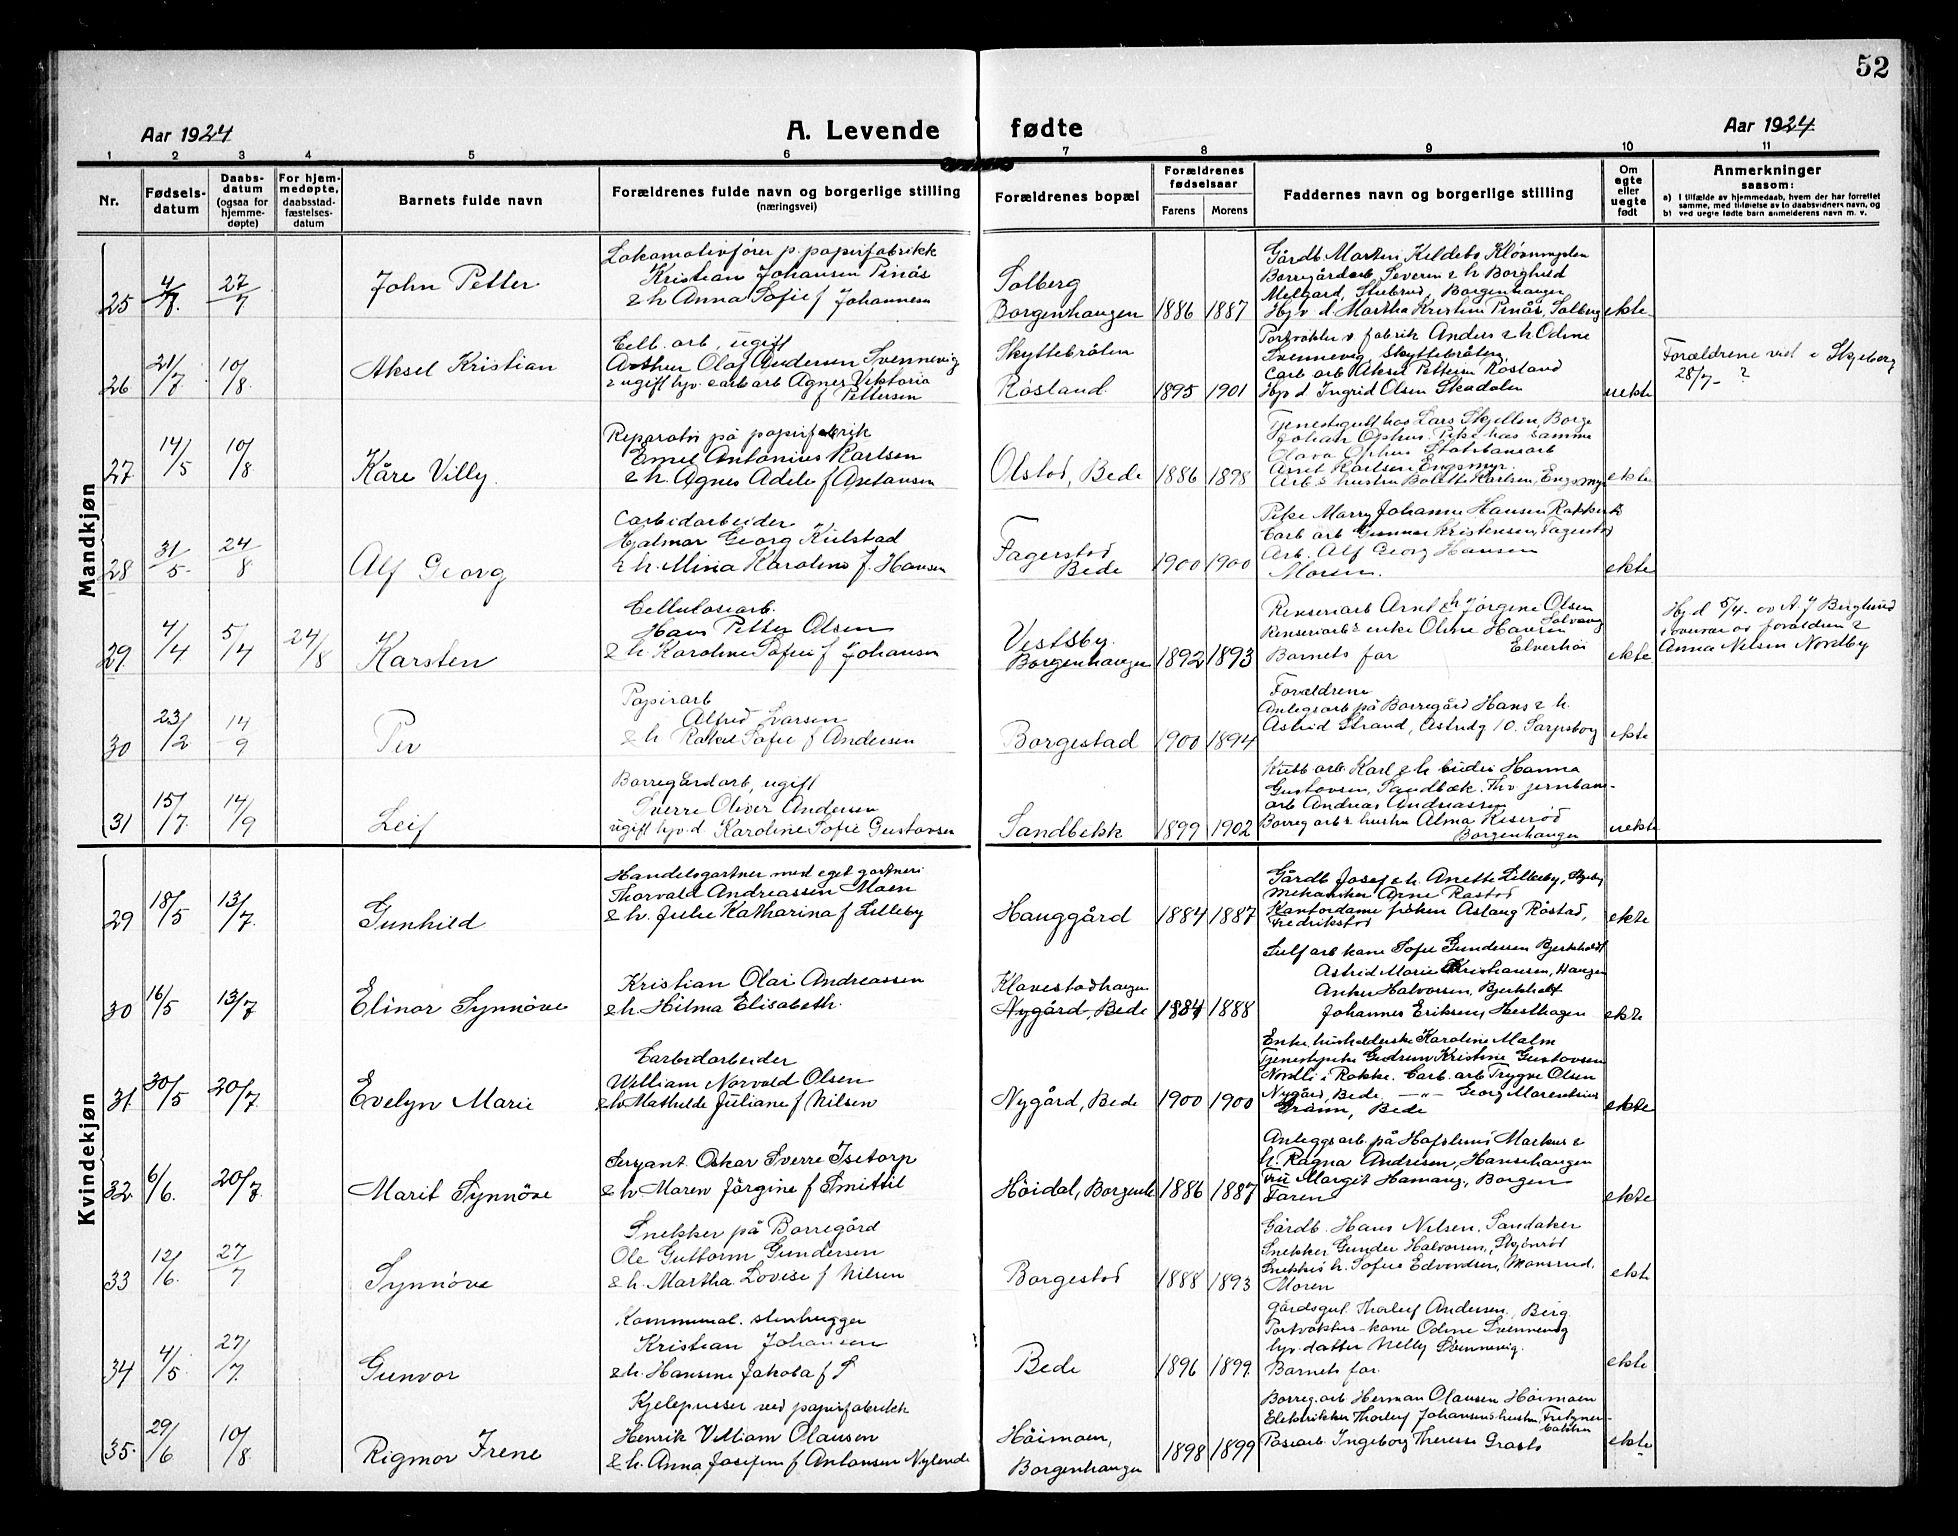 52
Aar 1924
A. Levende fødte
Aar 1924
1 2 3 4 5 6 7 8 9 10 11
Nr.
Fødsels-
datum
Daabs-
datum
(ogsaa for
hjemme-
døpte)
For hjem-
medøpte,
daabsstad-
fæstelses-
datum
Barnets fulde navn
Forældrenes fulde navn og borgerlige stilling
(næringsvei)
Forældrenes bopæl
Forældrenes
fødselsaar
Farens Morens
Faddernes navn og borgerlige stilling
Om
egte
eller
uegte
født
Anmerkninger
saasom:
a) I tilfælde av hjemmedaab, hvem der har forrettet
samme, med tilføielse av to daabsvidners navn, og
b) ved uegte fødte barn anmelderens navn m. v.
Mandkjøn
25
27/7
John Petter
Lokomotivfører p. papirfabrikk
Kristian Johansen Pinås
& h Anna Sofie f Johannesen
Solberg
Borgenhaugen
1886 1887
Gårdb Martin Kildebo
Borregårdarb. Severin & h Borghild
Melgard, Borgenhaugen
Hj v d. Martha Kristine Pinås, Solberg
ekte
26
21/7
10/8
Aksel Kristian
Cell. arb, ugift
Arthur Olaf Andersen Svennevig
& ugift hjv carb arb Agnes Viktoria
f Pettersen
Skyttebråten
Råsland
1895 1901
Portvakter v fabrik Anders & h Odine
Svennevig, Skyttebråten
Carb arb Aksel Pettersen Råsland
Hjv d Ingrid Olsen Skadalen
uekte
Forældrene viet i Skjeberg
28/7 - ?
27
14/5
10/8
Kåre Villy.
Reparatør på papirfabrik
Emil Antonius Karlsen
& h. Agnes Adele f Axelansen
Olstad, Bede
1886 1898
Tjenestegutt hos Lars Skjellen, Borge
Johan Ophus. Pike hos samme
Olava Ophus Statsbanearb
Arnt Karlsen Engsmyr.
Arb & hustru Bolette Karlsen, Engsmyr
ekte
28
31/5
24/8
Alf Georg
Carbidarbeider
Hjalmar Georg Kiilstad
& h. Mina Karoline f. Hansen
Fagerstad
Bede
1900 1900
Pike Marry Johanne Hansen Rakkest
Carb arb Gunnar Kristensen, Fagerstad
Arb. Alf Georg Hansen
Moren.
ekte
29
4/4
5/4
24/8
Karsten
Cellulosearb.
Hans Petter Olsen
& h. Karoline Sofie f Johansen
Vestsby.
Borgenhaugen
1892 1893
Renseriarb Arnt & h Jørgine Olsen
Solvang
Renseriarb & enke Oline Hansen
Barnets far Elverhøi
ekte
Hjd 5/4. av A. J Berglund
i overvær av forældrene &
Anna Nilsen Nordby
30
23/2
14/9
Per
Papirarb
Alfred Larsen
& h Rakel Sofie f Andersen
Borgestad
1900 1894
Forældrene
Anlegsarb på Borregård Hans & h.
Astrid Strand, Astridg 10. Sarpsborg
ekte
31
15/7
14/9
Leif
Borregårdarb, ugift
Sverre Oliver Andersen
ugift hjv. d. Karoline Sofie Gustavsen
Sandbekk
1899 1902
arb Karl & h Hanna
Gustavsen, Sandbæk. jernbane-
arb Andreas Andreassen
Borreg arb & hustru Alma Kiserød
Borgenhaugen
uekte
Kvindekjøn
29
18/5
13/7
Gunhild
Handelsgartner med eget gartneri
Thorvald Andreassen Moen
& h. Julie Katharina f Lilleby
Hauggård
1884 1887
Gårdb Josef & h. Anette Lilleby, Skjeberg
Mekaniker Arne Råstad
Kontordame frøken Aslaug Råstad,
Fredrikstad
ekte
30
16/5
13/7
Elinor Synnøve
Kristian Olai Andreassen
& h. Hilma Elisabeth.
Klavestadhaugen
Nygård, Bede
1884 1888
Sulf arb kone Sofie Gundersen Bjerkholt
Astrid Marie Kristiansen, Haugen
Anker Halvorsen, Bjerkholt
Johannes Eriksen, Hesthagen
ekte
31
30/5
20/7
Evelyn Marie
Carbidarbeider
William Norvald Olsen
& h Mathilde Juliane f Nilsen
Nygård, Bede
1900 1900
Enke, husholderske Karoline Malm
Tjenestepike Gudrun Kristine Gustavsen
Nordli i Rakke. Carb. arb Trygve Olsen
Nygård, Bede, — „ — Georg
Bede
ekte
32
6/6.
20/7
Marit Synnøve
Sersjant. Oskar Sverre Isetorp
& h Maren Jørgine f Smittil
Høidal, Borgenh
1886 1887
Anleggsarb på Hafslund Markus &
h. Ragna Andresen, Hansehaugen
Fru Margit Hamang, Borgen
Faren
ekte
33
12/6.
27/7
Synnøve
Snekker på Borregård
Ole Guttorm Gundersen
& h. Martha Lovise f Nilsen
Borgestad
1888 1893
Gårdb. Hans Nilsen, Sandaker
Snekker Gunder Halvorsen, Skjønrød
h. Sofie Edvardsen, Monsrud.
Moren
ekte
34
4/5
27/7
Gunvor
Kommunal. stenhugger
Kristian Johansen
& h. Hansine Jakoba f S
Bede
1896 1899
Gårdsgut. Thorleif Andersen, Berg.
Portvakters-kone Odine Svennevig
hjv. datter Nelly Svennevig.
Barnets far.
ekte
35
29/6
10/8
Rigmor Irene
Kjelepusser ved papirfabrikk
Henrik Villiam Olausen
& h. Anna Josefine f Antonsen Nylende
Høimoen,
Borgenhaugen
1898 1899
Borreg. arb Herman Olausen Høimoen
Elektrikker Thorleif Johansens hustru,
Ingeborg Therese
ekte